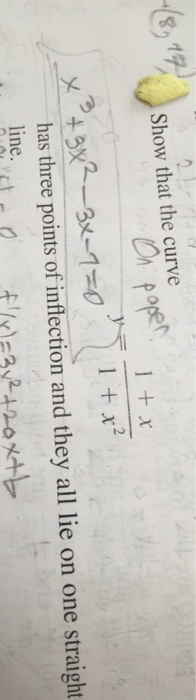 Show that the curve
On paper
y = \frac{1 + x}{1 + x^2}
x^3 + 3x^2 - 3x - 1 = 0
has three points of inflection and they all lie on one straight
line.
f'(x) = 3x^2 + 2ax + b